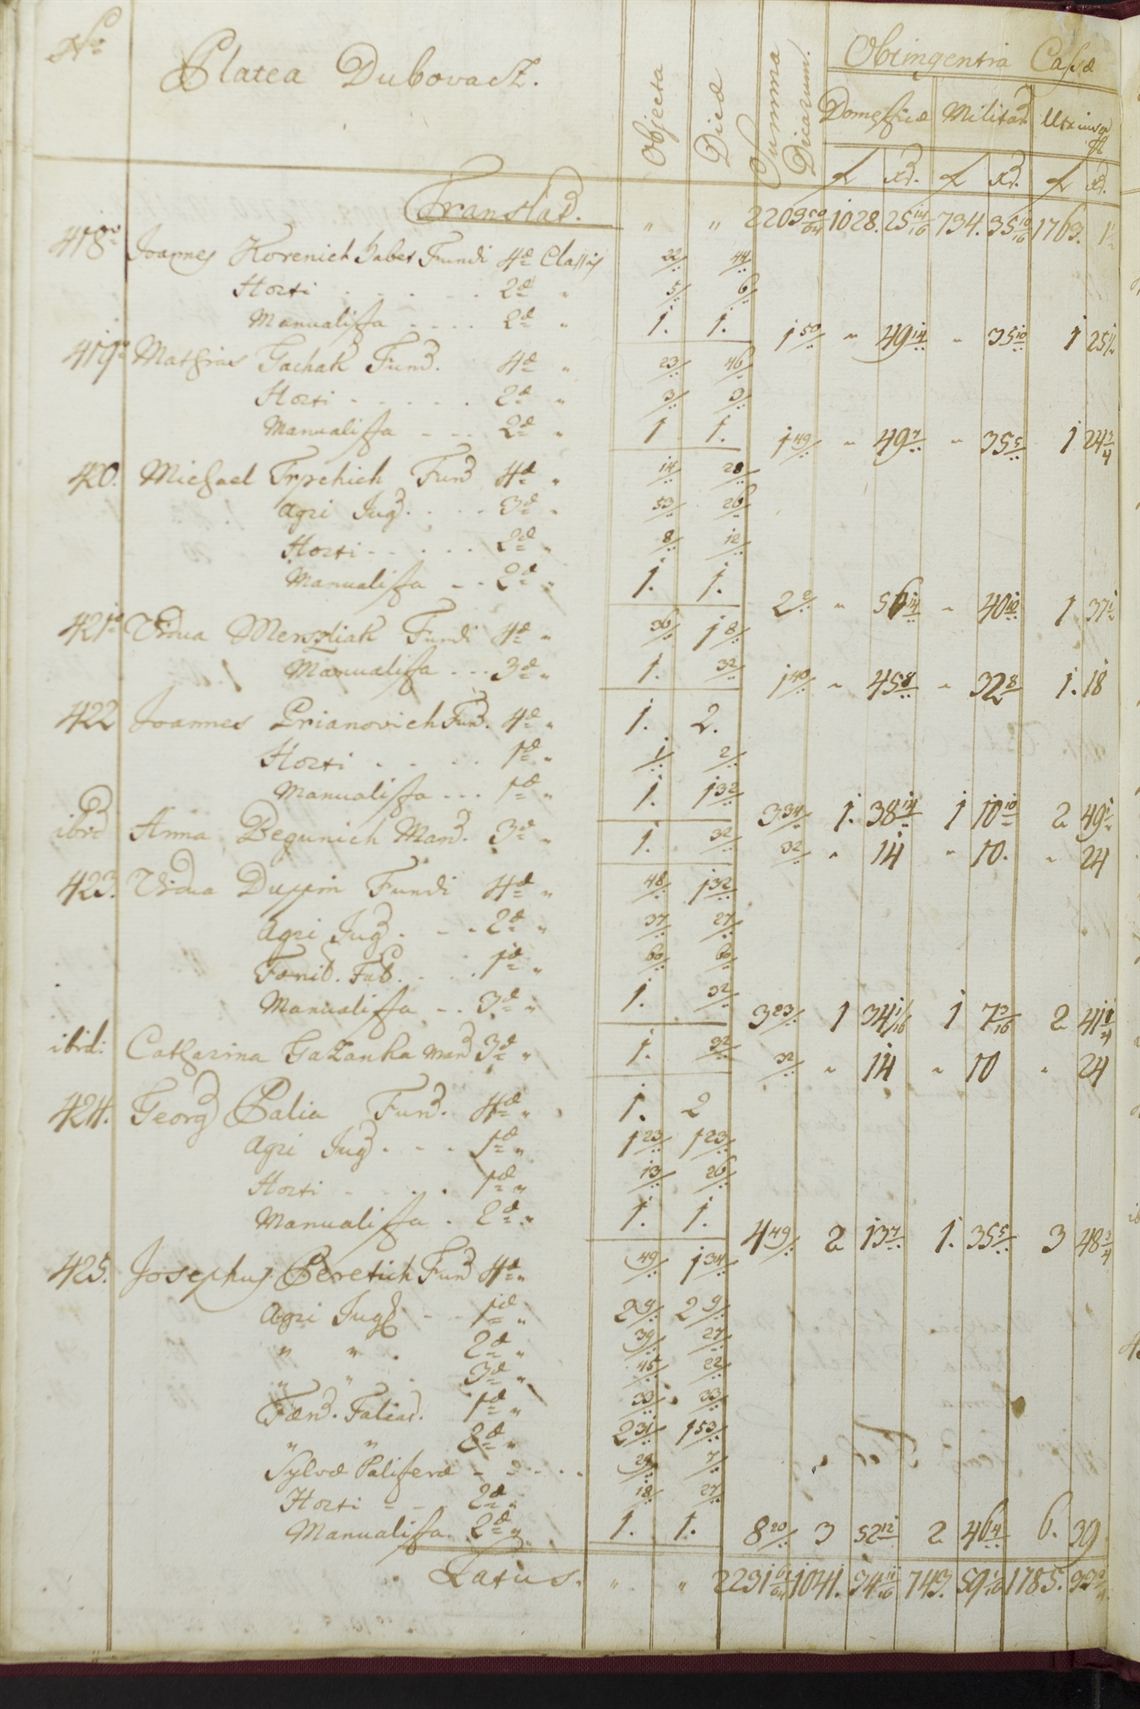 No Platea Dubovacz. Objecta Dicæ Summa Dicarum. Obtingentia Cassæ
Domesticæ Militar. Utriusq
f xr. f xr. f xr.
Translat. " " 2209 50/64 1028. 25 14/16 734. 35 10/16 1763. 1
418 Joannes Horenich habet Fundi 4æ Classis 22/ 44/
Horti 2æ " 5/ 6/
Manualista 2æ " 1. 1. 1 50/ " 49 14 " 35 10 1 25
419 Mathias Gachak Fund. 4æ " 23/ 46/
Horti 2æ " 3/ 3/
Manualista 2æ " 1 1. 1 49/ " 49 7 " 35 5 1 24 3/4
420. Michael Fund 4æ " 14/ 28/
Agri Jug. 3æ " 53/ 26/
Horti 2æ " 8/ 12/
Manualista 2æ " 1. 1. 2 2/ " 56 14 " 40 10 1 37
421 Vidua Merszliak Fundi 4æ " 36/ 1 8/
Manualista 3æ " 1. 32/ 1 40/ " 45 8 " 32 8 1. 18
422 Joannes Prianovich Fund. 4æ " 1. 2.
Horti 1æ " 1/ 2/
Manualista 1æ " 1. 1 32/ 3 34/ 1. 38 14 1 10 10 2 49
ibid Anna Begunich Man. 3æ " 1. 32/ 32/ " 14 " 10. " 24
423. Vidua Fundi 4æ " 48/ 1 32/
Agri Jug. 2æ " 37/ 27/
Fænil. Falc. 1æ " 60/ 60/
Manualista 3æ " 1. 32/ 3 23/ 1 34 1/16 1 7 3/16 2 41 1/4
ibid: Catharina Gazanka Man 3æ " 1. 32/ 32/ " 14 " 10 " 24
424. Georg Palia Fund. 4æ " 1. 2
Agri Jug. 1æ " 1 23/ 1 23/
Horti 1æ " 13/ 26/
Manualista 2æ " 1. 1. 4 49/ 2 13 7 1. 35 5 3 48 3/4
425. Josephus Peretich Fund 4æ " 49/ 1 34/
Agri Jug 1æ " 2 9/ 2 9/
" " 2æ " 39/ 27/
" " 3æ " 45/ 22/
Fæn. Falcat. 1æ " 33/ 33/
" " 2æ " 2 31/ 1 53/
Sylvæ Paliferæ 29/ 7/
Horti 2æ " 18/ 27/
Manualista 2æ " 1. 1. 8 20/ 3 52 12 2 46 4 6. 39
Latus. " " 2231 1041. 34 11/16 743. 59 1/16 1785. 33 3/4